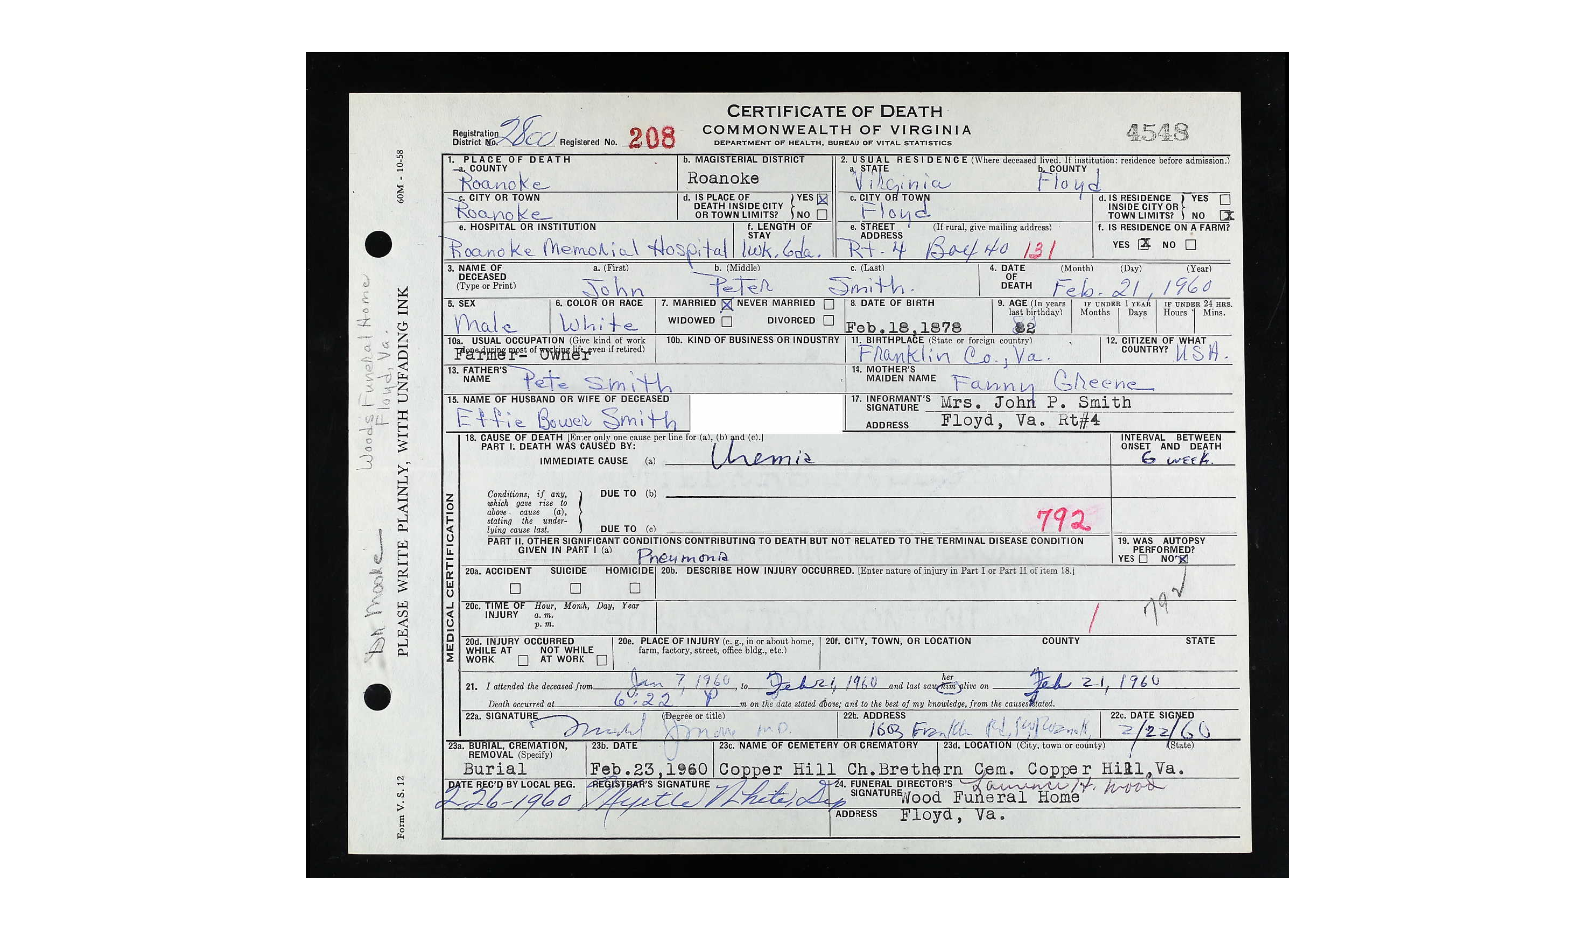 CERTIFICATE OF DEATH
COMMONWEALTH OF VIRGINIA
DEPARTMENT OF HEALTH, BUREAU OF VITAL STATISTICS
4548
Registration District No. 2800 Registered No. 208
60M - 10-58
PLEASE WRITE PLAINLY, WITH UNFADING INK
Form V. S. 12
Woods Funeral Home
Floyd, Va.
1. PLACE OF DEATH
a. COUNTY
Roanoke
b. MAGISTERIAL DISTRICT
Roanoke
2. USUAL RESIDENCE (Where deceased lived. If institution: residence before admission.)
a. STATE
Virginia
b. COUNTY
Floyd
c. CITY OR TOWN
Roanoke
d. IS PLACE OF DEATH INSIDE CITY OR TOWN LIMITS? YES NO
c. CITY OR TOWN
Floyd
d. IS RESIDENCE INSIDE CITY OR TOWN LIMITS? YES NO
e. HOSPITAL OR INSTITUTION
Roanoke Memorial Hospital
f. LENGTH OF STAY
1wk. 6da.
e. STREET ADDRESS (If rural, give mailing address)
Rt. 4 Box 40 131
f. IS RESIDENCE ON A FARM?
YES NO
3. NAME OF DECEASED (Type or Print)
a. (First) b. (Middle) c. (Last)
John Peter Smith.
4. DATE OF DEATH (Month) (Day) (Year)
Feb. 21, 1960
5. SEX
Male
6. COLOR OR RACE
White
7. MARRIED NEVER MARRIED
WIDOWED DIVORCED
8. DATE OF BIRTH
Feb.18,1878
9. AGE (In years last birthday)
82
IF UNDER 1 YEAR Months Days
IF UNDER 24 HRS. Hours Mins.
10a. USUAL OCCUPATION (Give kind of work done during most of working life, even if retired)
Farmer- Owner
10b. KIND OF BUSINESS OR INDUSTRY
11. BIRTHPLACE (State or foreign country)
Franklin Co., Va.
12. CITIZEN OF WHAT COUNTRY? USA.
13. FATHER'S NAME Pete Smith
14. MOTHER'S MAIDEN NAME Fanny Greene
15. NAME OF HUSBAND OR WIFE OF DECEASED
Effie Bower Smith
17. INFORMANT'S SIGNATURE Mrs. John P. Smith
ADDRESS Floyd, Va. Rt#4
MEDICAL CERTIFICATION
18. CAUSE OF DEATH [Enter only one cause per line for (a), (b) and (c).]
PART I. DEATH WAS CAUSED BY:
IMMEDIATE CAUSE (a) Uremia
INTERVAL BETWEEN ONSET AND DEATH
6 week.
Conditions, if any, which gave rise to above cause (a), stating the underlying cause last.
DUE TO (b)
DUE TO (c)
792
PART II. OTHER SIGNIFICANT CONDITIONS CONTRIBUTING TO DEATH BUT NOT RELATED TO THE TERMINAL DISEASE CONDITION GIVEN IN PART I (a)
Pneumonia
19. WAS AUTOPSY PERFORMED?
YES NO
20a. ACCIDENT SUICIDE HOMICIDE
20b. DESCRIBE HOW INJURY OCCURRED. (Enter nature of injury in Part I or Part II of item 18.)
792
20c. TIME OF INJURY Hour, Month, Day, Year
a. m.
p. m.
20d. INJURY OCCURRED
WHILE AT WORK NOT WHILE AT WORK
20e. PLACE OF INJURY (e. g., in or about home, farm, factory, street, office bldg., etc.)
20f. CITY, TOWN, OR LOCATION COUNTY STATE
21. I attended the deceased from Jan 7, 1960, to Feb 21, 1960 and last saw her him alive on Feb 21, 1960
Death occurred at 6:22 P m on the date stated above; and to the best of my knowledge, from the causes stated.
22a. SIGNATURE (Degree or title)
M.D.
22b. ADDRESS
1603 Franklin Rd.
22c. DATE SIGNED
2/22/60
23a. BURIAL, CREMATION, REMOVAL (Specify)
Burial
23b. DATE
Feb.23,1960
23c. NAME OF CEMETERY OR CREMATORY
Copper Hill Ch.Brethern Cem.
23d. LOCATION (City, town or county) (State)
Copper Hill,Va.
DATE REC'D BY LOCAL REG.
2-26-1960
REGISTRAR'S SIGNATURE
Myrtle White, Dep
24. FUNERAL DIRECTOR'S SIGNATURE Laurence H. Wood
Wood Funeral Home
ADDRESS Floyd, Va.